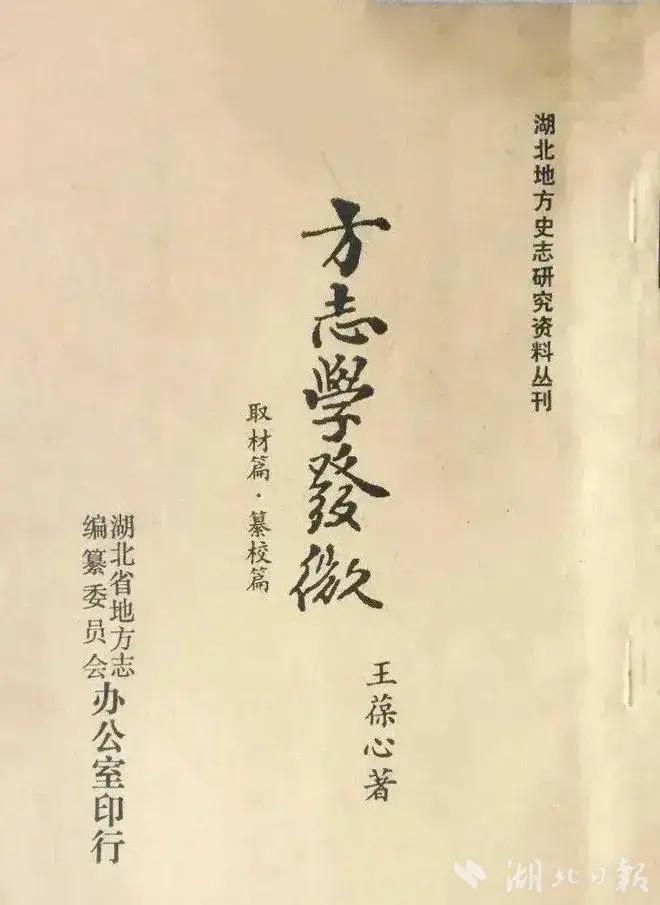 湖北地方史志研究资料丛刊
方志學發微
取材篇·纂校篇
王葆心著
湖北省地方志
编纂委员会
办公室印行
湖北日報